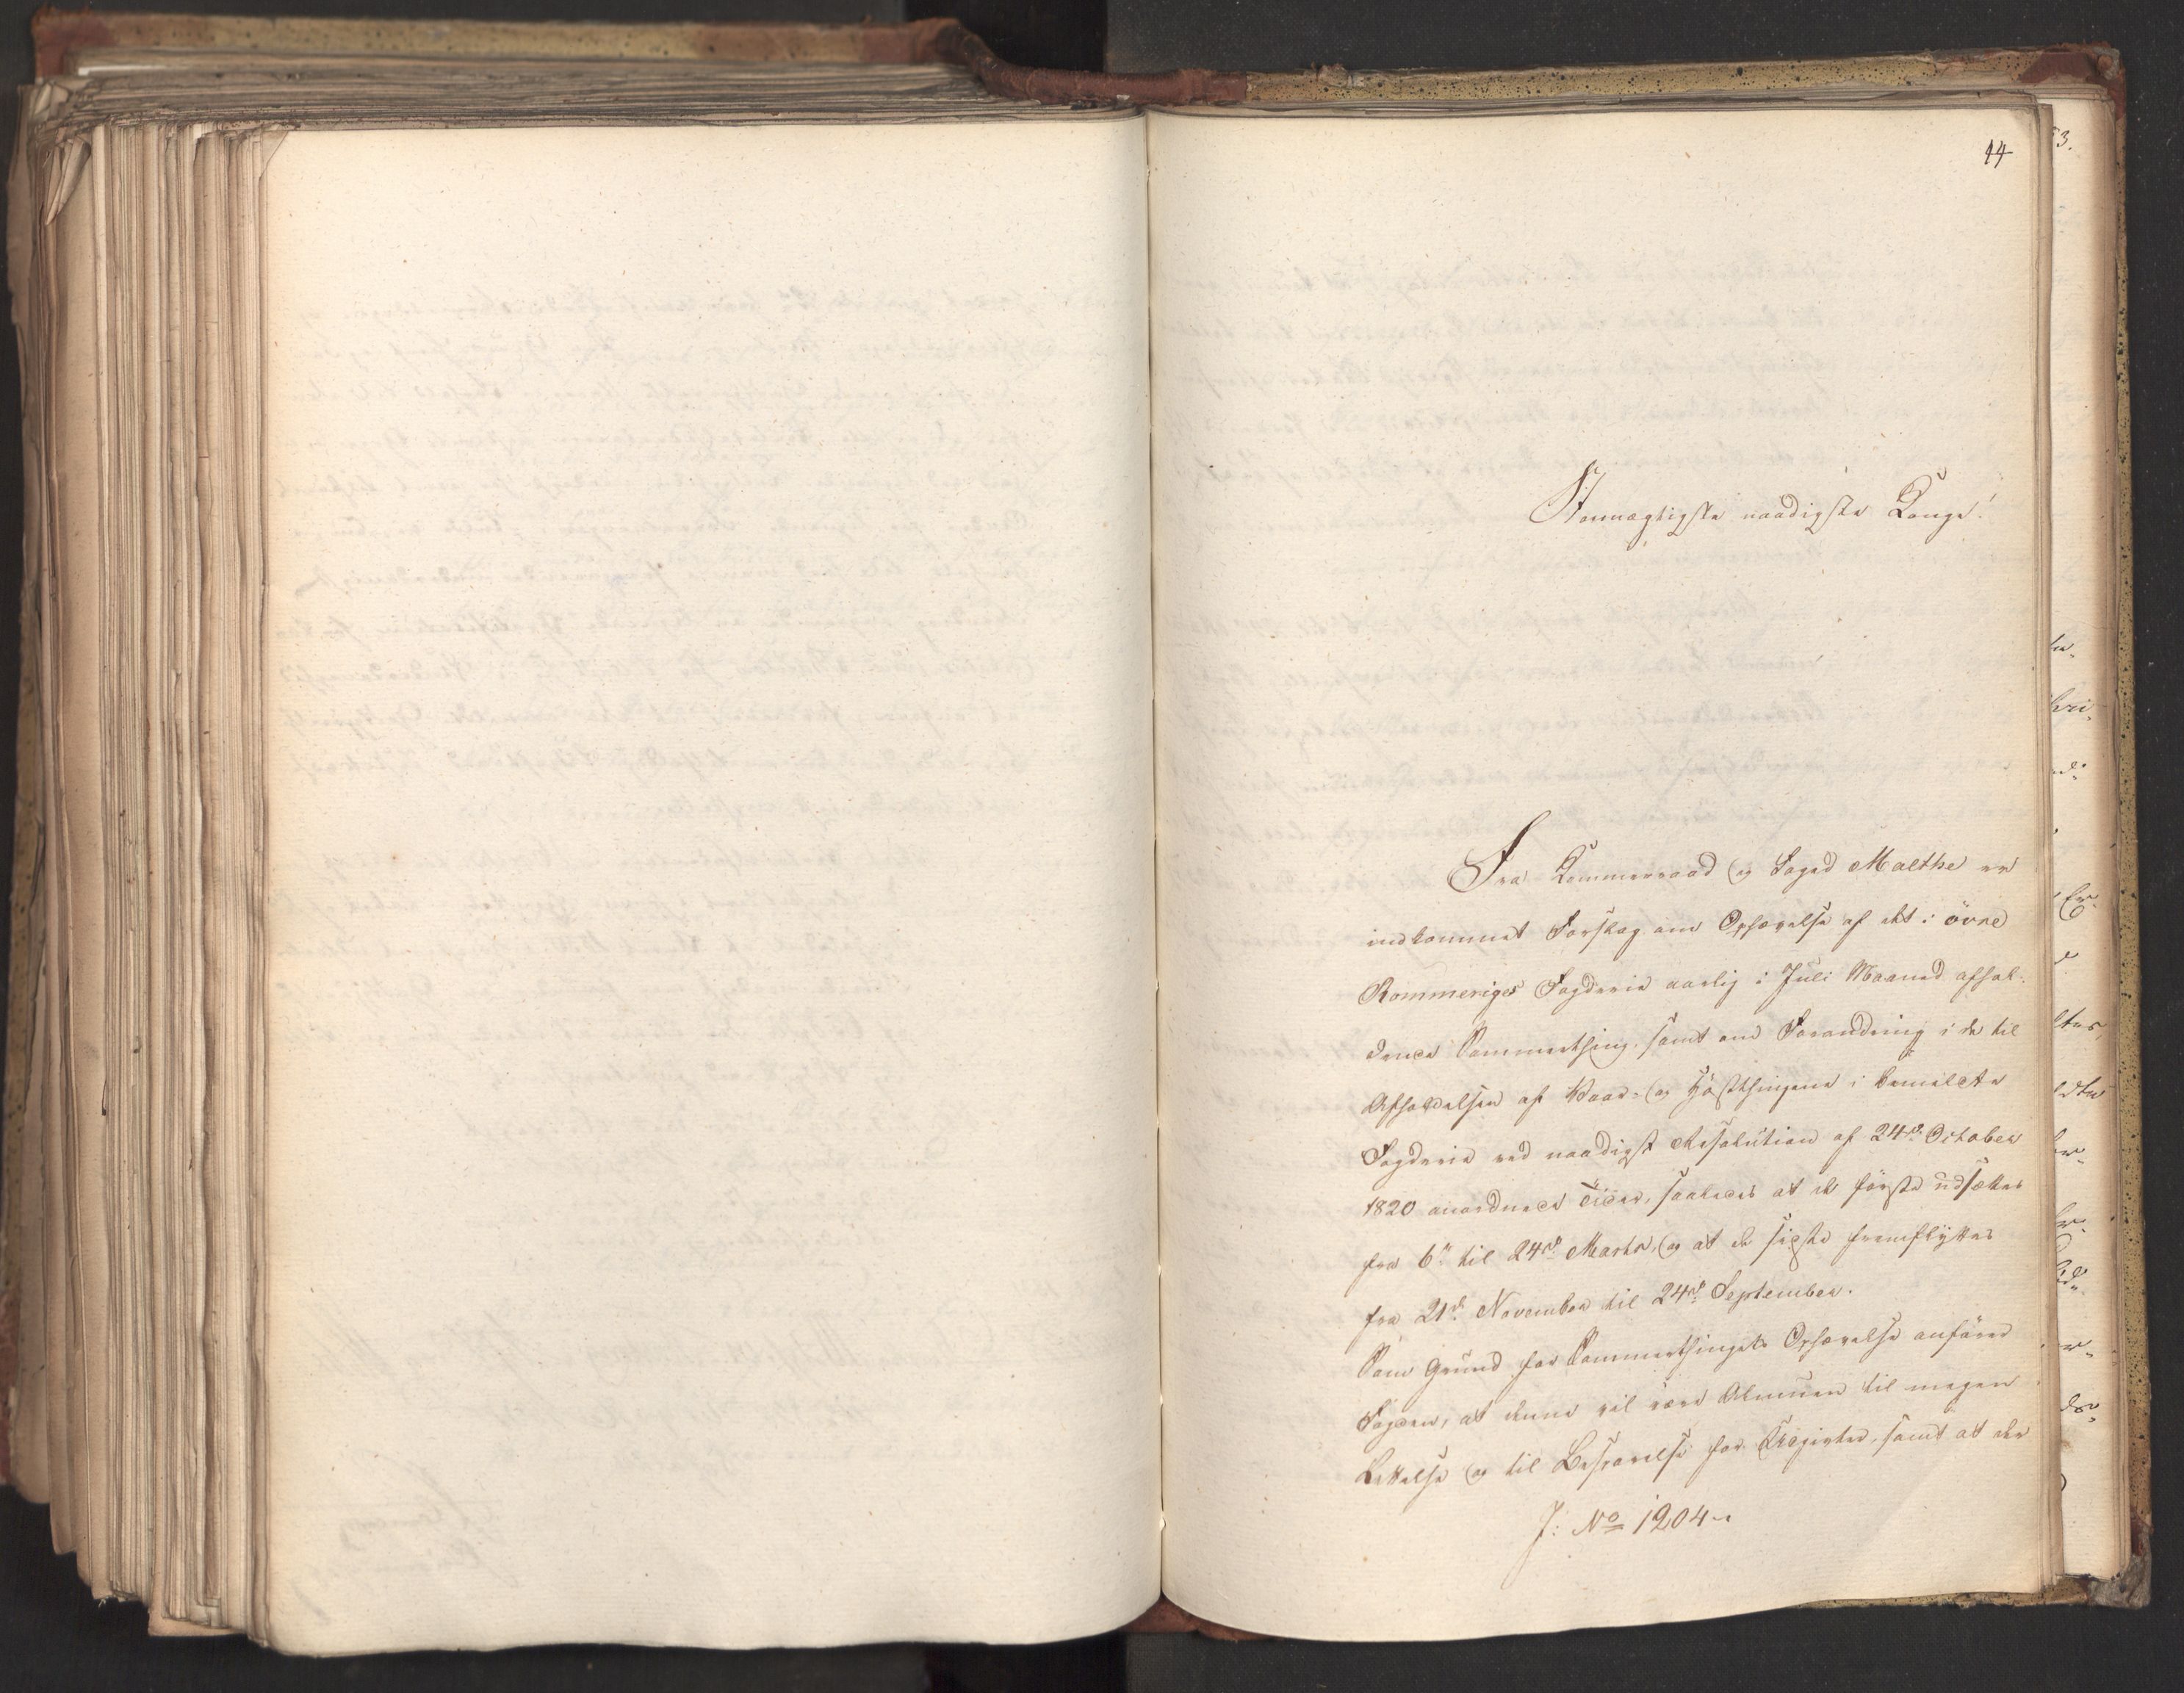 14
Stormægtigste naadigste Konge!
Fra Kammerraad og Foged Malthe er
indkommet Forslag om Ophævelse af det i övre
Rommeriges Fogderie aarlig i Juli Maaned afhol-
dende Sommerthing, samt om Forandring i de til
Afholdelsen af Vaar- og Höstthingene i bemeldte
Fogderie ved naadigst Resolution af 24de October
1820 anordnede Tider, saaledes at de förste udsættes
fra 6te til 24de Marts, og at de sidste fremflyttes
fra 21de November til 24de September.
Som Grund for Sommerthingets Ophævelse anförer
Fogden, at denne vil være Almuen til megen
Lettelse og til Besparelse for Udgifter, samt at der
J: No 1204.